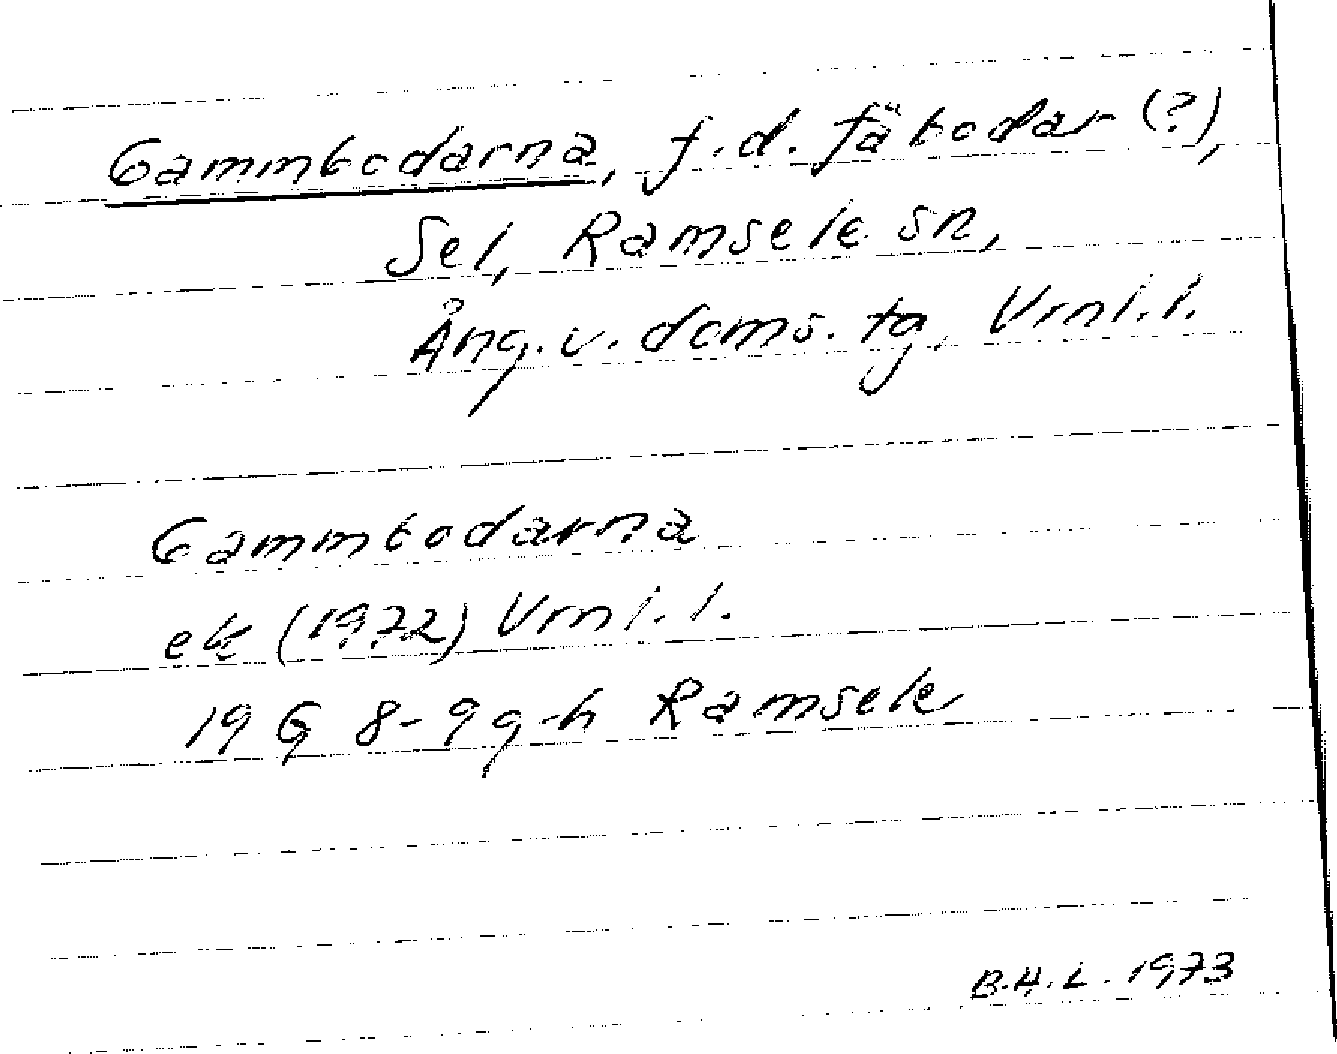 Gammbodarna, f.d. fäbodar (?),
Sel, Ramsele sn,
Ång. v. doms. tg, Vrnl. l.
Gammbodarna
ek (1972) Vrnl. l.
19 G 8-9 g-h Ramsele
B.H.L. 1973